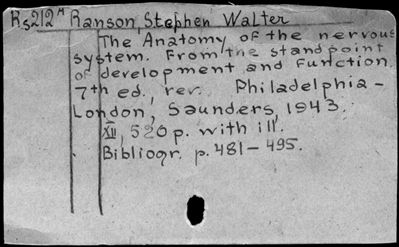 Rs212ᴬ Ranson, Stephen Walter
The Anatomy of the nervous
system. From the standpoint
of development and function.
7th ed., rev. Philadelphia -
London, Saunders, 1943.
XII, 520 p. with ill.
Bibliogr. p. 481-495.